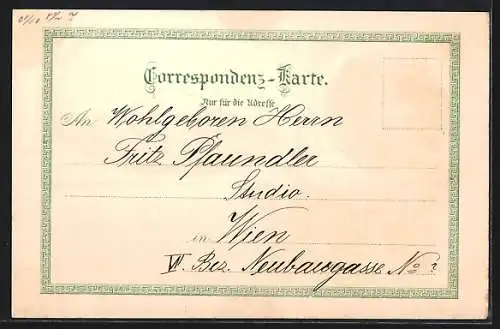 Correspondenz-Karte.
Nur für die Adresse
An Wohlgeboren Herrn
Fritz Pfaundler
Studio.
in Wien
VII. Bez. Neubaugasse No ?